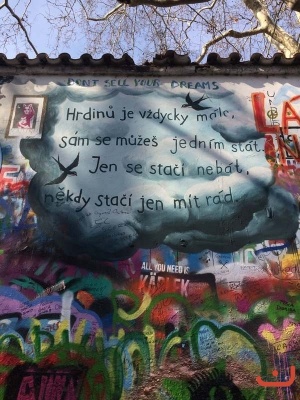 DON'T SELL YOUR DREAMS
Hrdinů je vždycky málo,
sám se můžeš jedním stát.
Jen se stačí nebát,
někdy stačí jen mít rád.
ALL YOU NEED IS
KÄRLEK